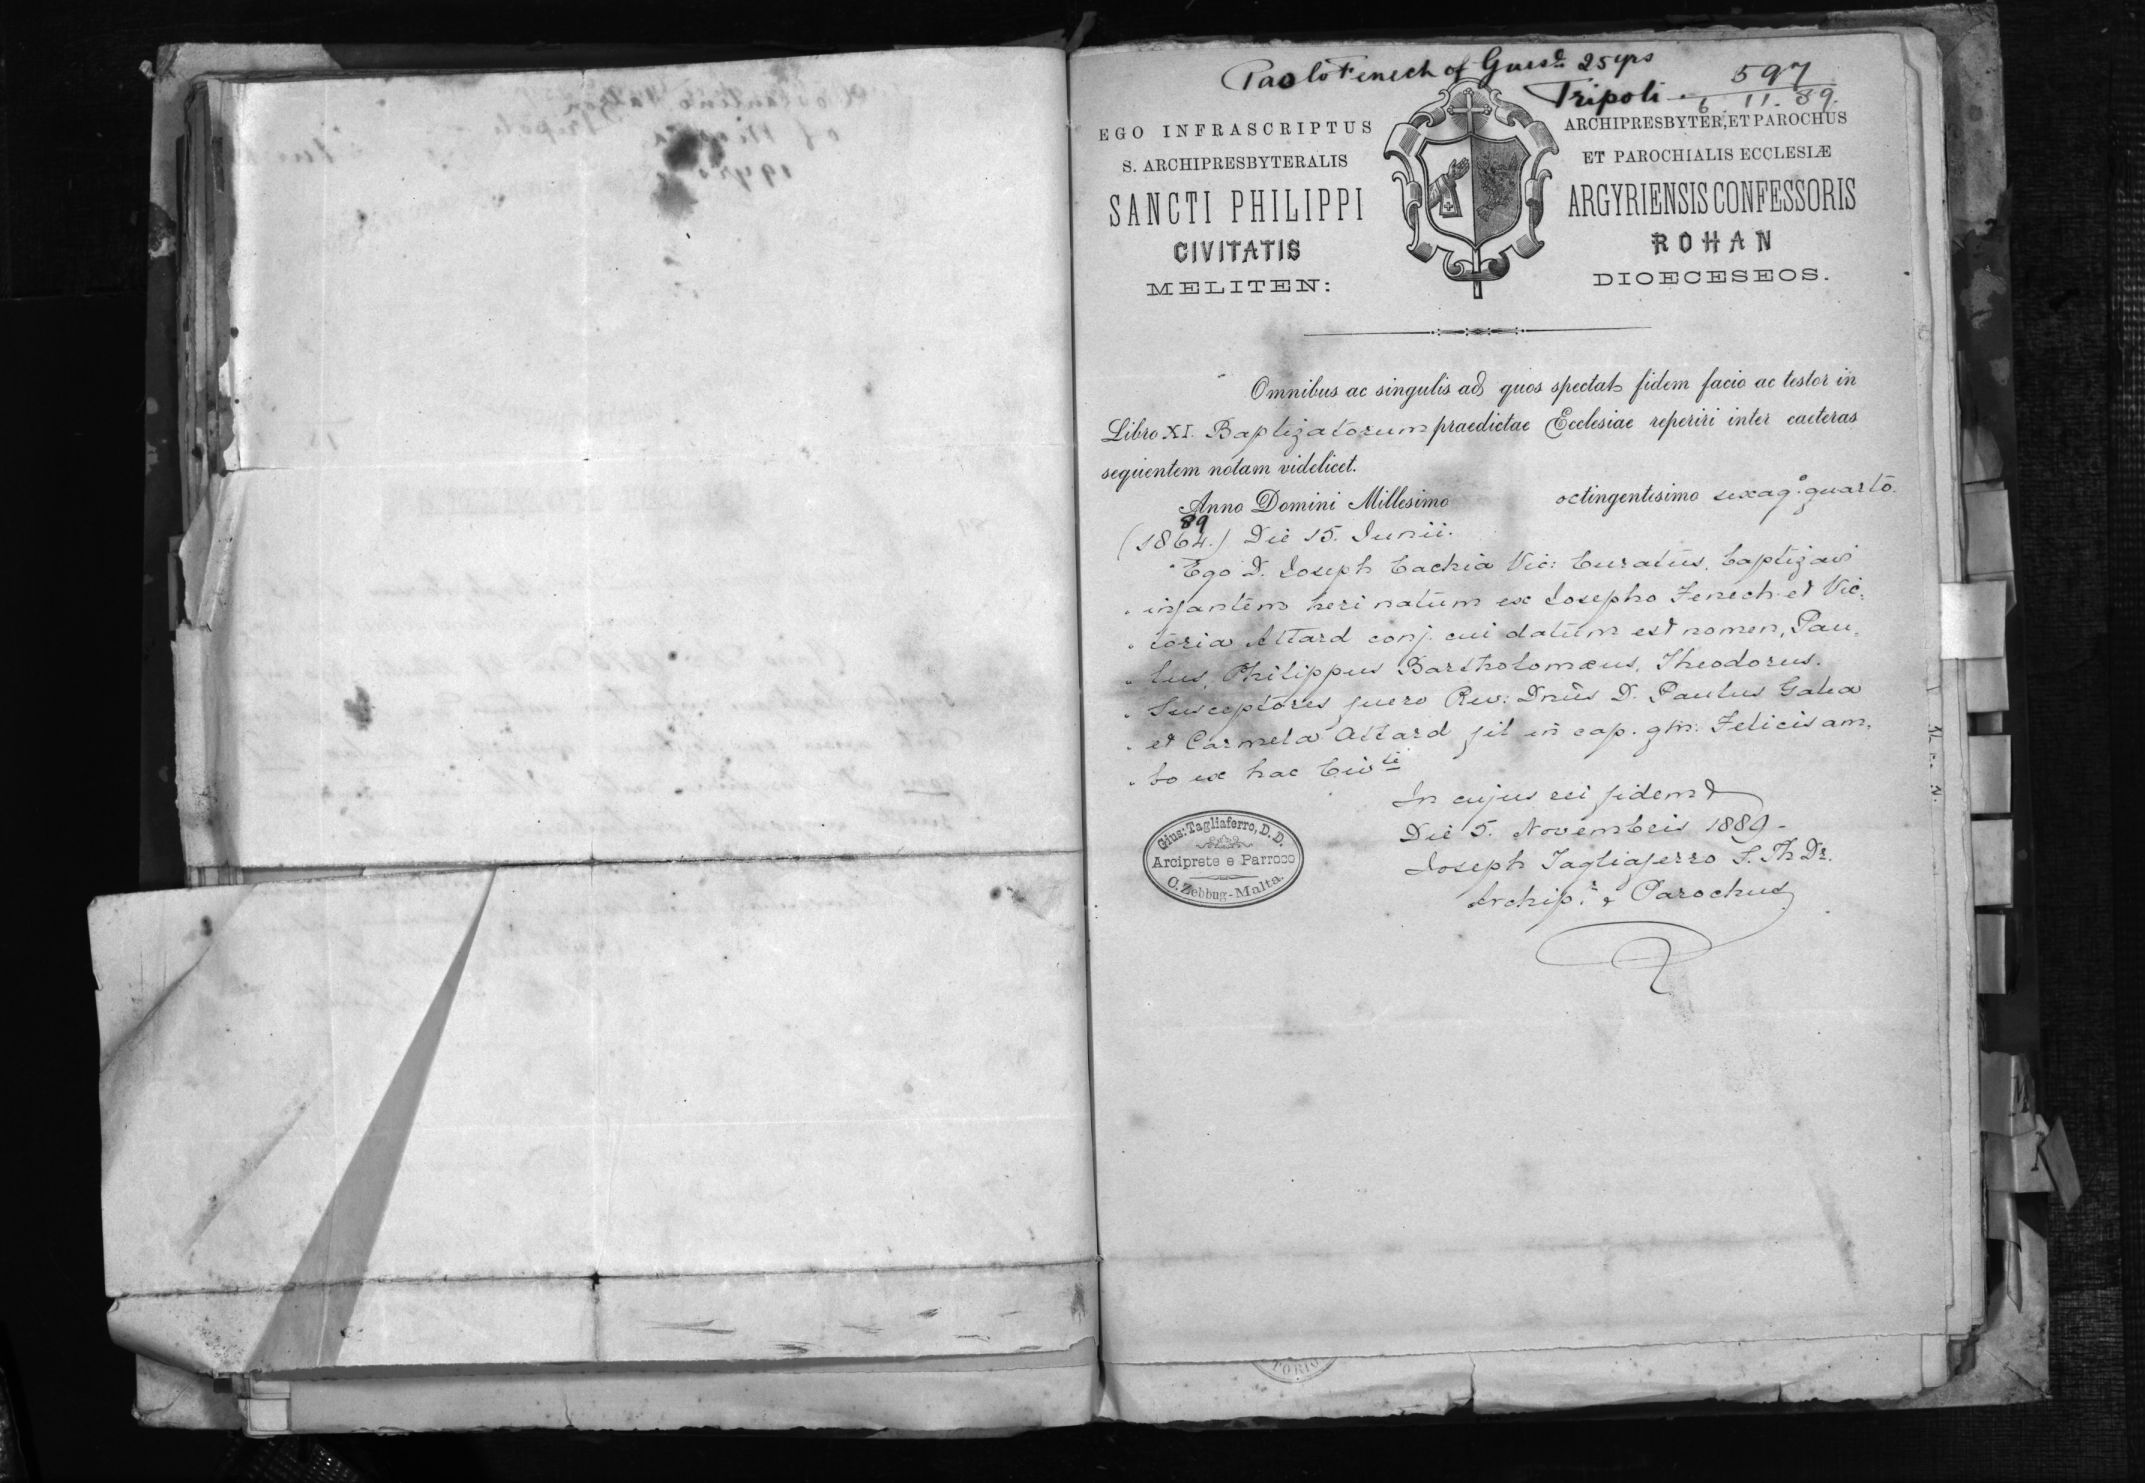 Paolo Fenech of Gius.e 25 yrs
Tripoli . 597
6 . 11 . 89.
EGO INFRASCRIPTUS
S. ARCHIPRESBYTERALIS
SANCTI PHILIPPI
CIVITATIS
MELITEN:
ARCHIPRESBYTER, ET PAROCHUS
ET PAROCHIALIS ECCLESIÆ
ARGYRIENSIS CONFESSORIS
ROHAN
DIOECESEOS.
Omnibus ac singulis ad quos spectat fidem facio ac testor in
Libro XI. Baptizatorum praedictae Ecclesiae reperiri inter caeteras
sequentem notam videlicet.
Anno Domini Millesimo octingentesimo sexag.o quarto.
89
(1864.) Die 15. Junii.
"Ego D. Joseph Cachia Vic: Curatus, baptizavi
" infantem heri natum ex Josepho Fenech et Vic,
" toria Attard conj. cui datum est nomen, Pau,
" lus, Philippus Bartholomæus, Theodorus.
" Susceptores fuere Rev: Dnūs D. Paulus Galea
" et Carmela Attard fil in cap. qm: Felicis am,
" bo ex hac Civ.te
In cujus rei fidem
Die 5. Novembris 1889-
Joseph Tagliaferro S. Th Dr.
Archip.r & Parochus
Gius: Tagliaferro, D. D.
Arciprete e Parroco
C. Zebbug-Malta.
TORIO